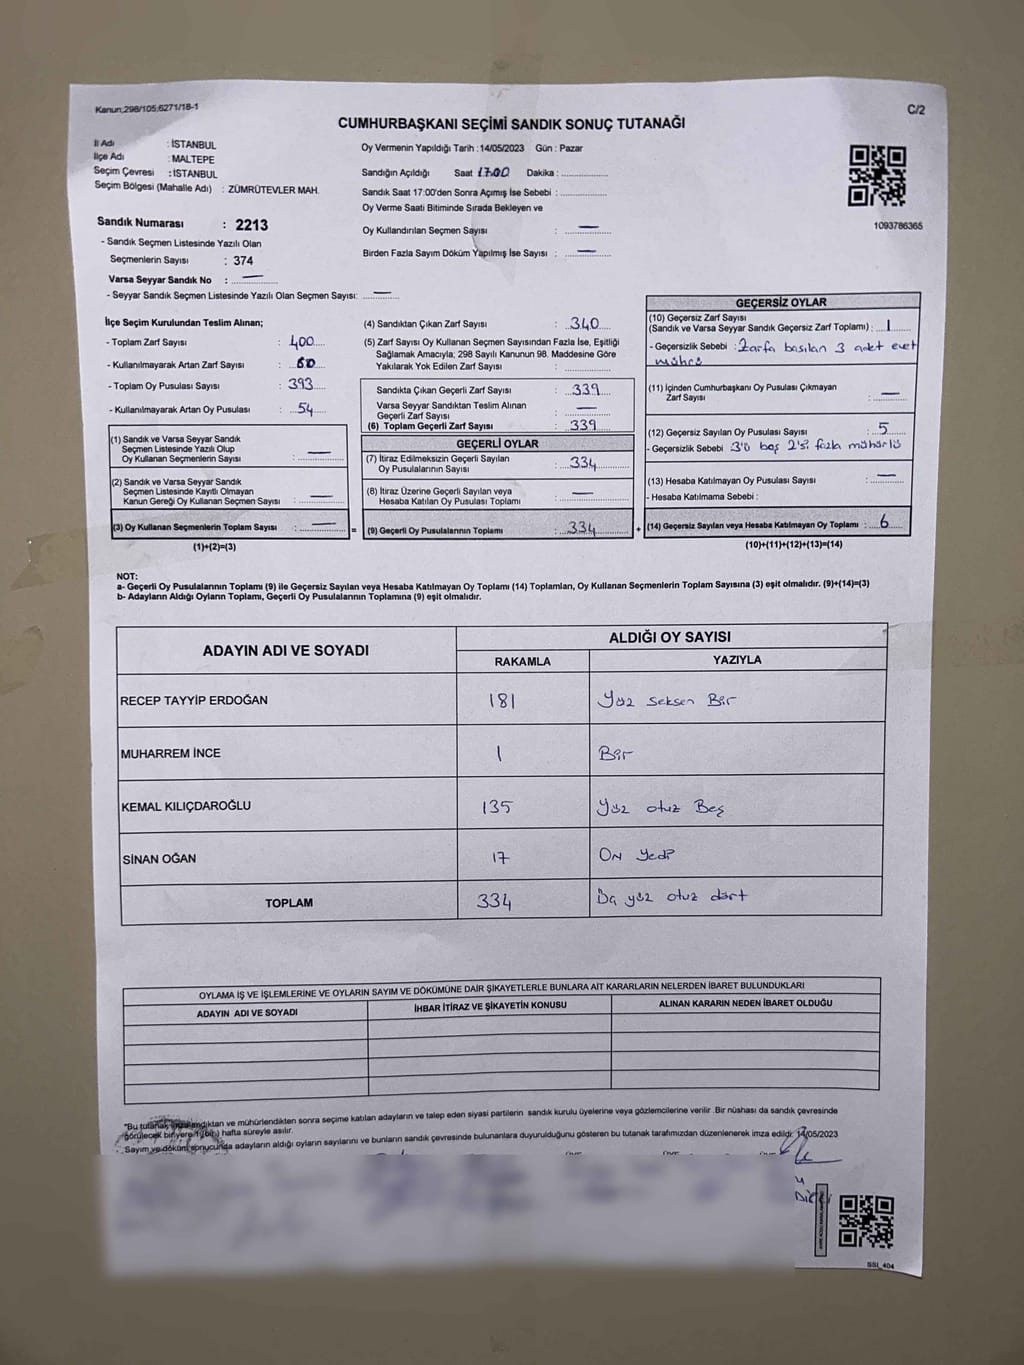 Kanun:298/105;6271/18-1
C/2
CUMHURBAŞKANI SEÇİMİ SANDIK SONUÇ TUTANAĞI
İl Adı : İSTANBUL
İlçe Adı : MALTEPE
Seçim Çevresi : İSTANBUL
Seçim Bölgesi (Mahalle Adı) : ZÜMRÜTEVLER MAH.
Sandık Numarası : 2213
- Sandık Seçmen Listesinde Yazılı Olan
Seçmenlerin Sayısı : 374
Varsa Seyyar Sandık No : —
- Seyyar Sandık Seçmen Listesinde Yazılı Olan Seçmen Sayısı: —
Oy Vermenin Yapıldığı Tarih : 14/05/2023 Gün : Pazar
Sandığın Açıldığı Saat 17.00 Dakika : ..............
Sandık Saat 17:00'den Sonra Açımış İse Sebebi : ..............
Oy Verme Saati Bitiminde Sırada Bekleyen ve
Oy Kullandırılan Seçmen Sayısı : —
Birden Fazla Sayım Döküm Yapılmış İse Sayısı : —
1093786365
İlçe Seçim Kurulundan Teslim Alınan;
- Toplam Zarf Sayısı : 400
- Kullanılmayarak Artan Zarf Sayısı : 60
- Toplam Oy Pusulası Sayısı : 393
- Kullanılmayarak Artan Oy Pusulası : 54
(1) Sandık ve Varsa Seyyar Sandık
Seçmen Listesinde Yazılı Olup
Oy Kullanan Seçmenlerin Sayısı : —
(2) Sandık ve Varsa Seyyar Sandık
Seçmen Listesinde Kayıtlı Olmayan
Kanun Gereği Oy Kullanan Seçmen Sayısı : —
(3) Oy Kullanan Seçmenlerin Toplam Sayısı : —
(1)+(2)=(3)
(4) Sandıktan Çıkan Zarf Sayısı : 340
(5) Zarf Sayısı Oy Kullanan Seçmen Sayısından Fazla İse, Eşitliği
Sağlamak Amacıyla; 298 Sayılı Kanunun 98. Maddesine Göre
Yakılarak Yok Edilen Zarf Sayısı : ..............
Sandıkta Çıkan Geçerli Zarf Sayısı : 339
Varsa Seyyar Sandıktan Teslim Alınan
Geçerli Zarf Sayısı : —
(6) Toplam Geçerli Zarf Sayısı : 339
GEÇERLİ OYLAR
(7) İtiraz Edilmeksizin Geçerli Sayılan
Oy Pusulalarının Sayısı : 334
(8) İtiraz Üzerine Geçerli Sayılan veya
Hesaba Katılan Oy Pusulası Toplamı : —
= (9) Geçerli Oy Pusulalarının Toplamı : 334 +
GEÇERSİZ OYLAR
(10) Geçersiz Zarf Sayısı
(Sandık ve Varsa Seyyar Sandık Geçersiz Zarf Toplamı) : 1
- Geçersizlik Sebebi : Zarfa basılan 3 adet evet
mührü
(11) İçinden Cumhurbaşkanı Oy Pusulası Çıkmayan
Zarf Sayısı : —
(12) Geçersiz Sayılan Oy Pusulası Sayısı : 5
- Geçersizlik Sebebi : 3'ü boş 2'si fazla mühürlü
(13) Hesaba Katılmayan Oy Pusulası Sayısı : —
- Hesaba Katılmama Sebebi :
(14) Geçersiz Sayılan veya Hesaba Katılmayan Oy Toplamı : 6
(10)+(11)+(12)+(13)=(14)
NOT:
a- Geçerli Oy Pusulalarının Toplamı (9) ile Geçersiz Sayılan veya Hesaba Katılmayan Oy Toplamı (14) Toplamları, Oy Kullanan Seçmenlerin Toplam Sayısına (3) eşit olmalıdır. (9)+(14)=(3)
b- Adayların Aldığı Oyların Toplamı, Geçerli Oy Pusulalarının Toplamına (9) eşit olmalıdır.
ADAYIN ADI VE SOYADI
ALDIĞI OY SAYISI
RAKAMLA YAZIYLA
RECEP TAYYİP ERDOĞAN 181 Yüz Seksen Bir
MUHARREM İNCE 1 Bir
KEMAL KILIÇDAROĞLU 135 Yüz otuz Beş
SİNAN OĞAN 17 On Yedi
TOPLAM 334 Üç yüz otuz dört
OYLAMA İŞ VE İŞLEMLERİNE VE OYLARIN SAYIM VE DÖKÜMÜNE DAİR ŞİKAYETLERLE BUNLARA AİT KARARLARIN NELERDEN İBARET BULUNDUKLARI
ADAYIN ADI VE SOYADI İHBAR İTİRAZ VE ŞİKAYETİN KONUSU ALINAN KARARIN NEDEN İBARET OLDUĞU
"Bu tutanak imzalandıktan ve mühürlendikten sonra seçime katılan adayların ve talep eden siyasi partilerin sandık kurulu üyelerine veya gözlemcilerine verilir. Bir nüshası da sandık çevresinde
görülecek bir yere 1 (bir) hafta süreyle asılır.
Sayım ve döküm sonucunda adayların aldığı oyların sayılarını ve bunların sandık çevresinde bulunanlara duyurulduğunu gösteren bu tutanak tarafımızdan düzenlenerek imza edildi. 14/05/2023
SSI_404